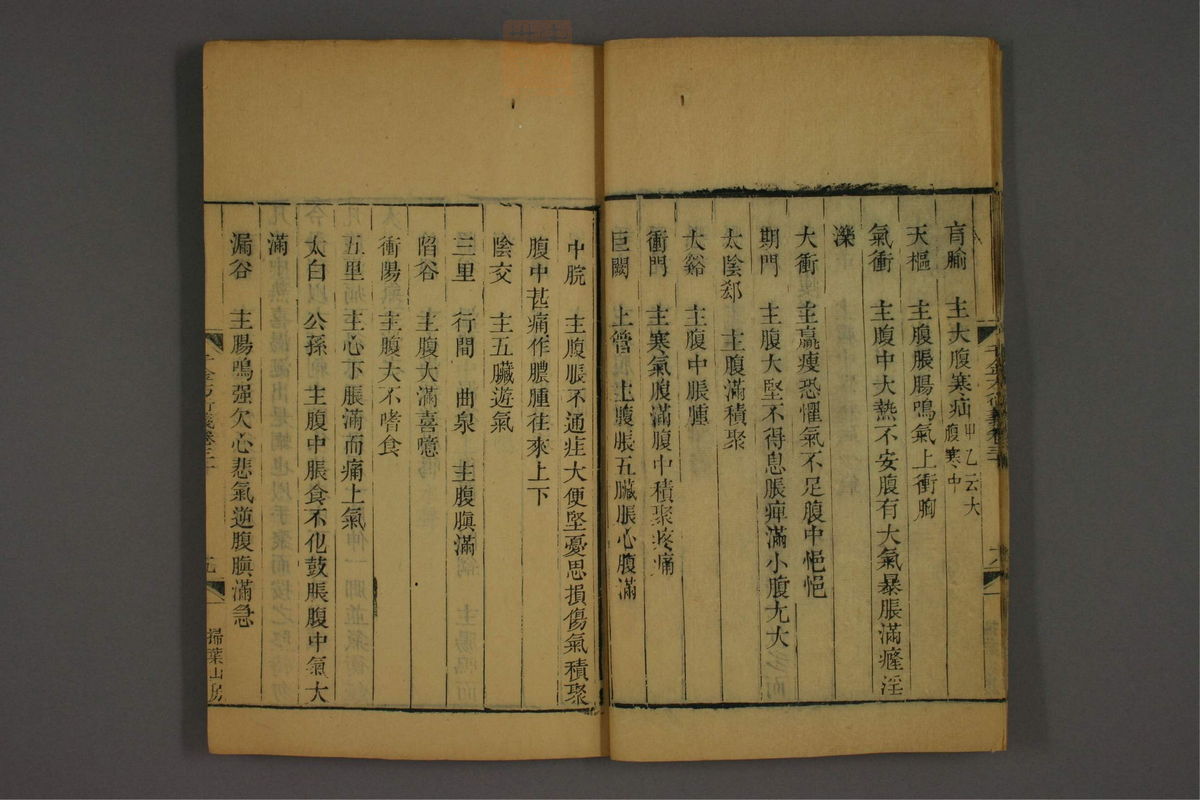 肓腧 主大腹寒疝甲乙云大腹寒中
天樞 主腹脹腸鳴氣上衝胸
氣衝 主腹中大熱不安腹有大氣暴脹滿癃淫
濼
大衝 主羸瘦恐懼氣不足腹中悒悒
期門 主腹大堅不得息脹痺滿小腹尤大
太陰郄 主腹滿積聚
太谿 主腹中脹腫
衝門 主寒氣腹滿腹中積聚疼痛
巨闕 上管 主腹脹五臟脹心腹滿
中脘 主腹脹不通疰大便堅憂思損傷氣積聚
腹中甚痛作膿腫往來上下
陰交 主五臟遊氣
三里 行間 曲泉 主腹䐜滿
陷谷 主腹大滿喜噫
衝陽 主腹大不嗜食
五里 主心下脹滿而痛上氣
太白 公孫 主腹中脹食不化鼓脹腹中氣大
滿
漏谷 主腸鳴强欠心悲氣逆腹䐜滿急
九
掃葉山房